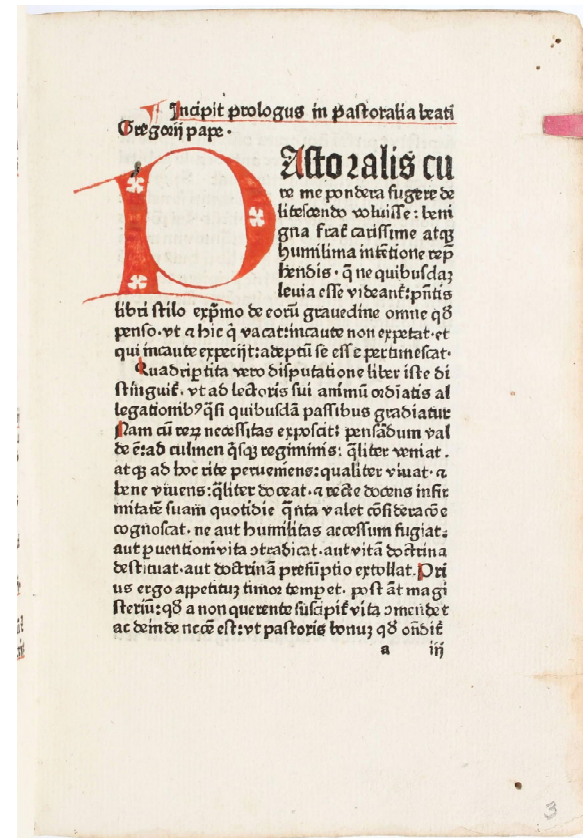 Incipit prologus in Pastoralia beati
Gregorij pape .
PAstoralis cu
re me pondera fugere de
litescendo voluisse : beni
gna frat̃ carissime atqꝫ
humilima intẽtione rep̃
hendis . q̃ ne quibusdaꝫ
levia esse videant̃ : p̃ntis
libri stilo exp̃mo de eorũ gravedine omne qð
penso . vt ⁊ hic q̃ vacat : incaute non expetat . et
qui incaute expecijt : adeptũ se esse pertimescat .
Quadriptita vero disputatione liber iste di
stinguit̃ . vt ad lectoris sui animũ ordiatis al
legationibꝰ q̃si quibusdã passibus gradiatur
Nam cũ reꝝ necessitas exposcit : pensãdum val
de ẽ : ad culmen q̃sqꝫ regiminis : q̃liter veniat .
atqꝫ ad hoc rite perueniens : qualiter viuat . ⁊
bene viuens : q̃liter doceat . ⁊ recte docens infir
mitatẽ suam quotidie q̃nta valet cõsideracõe
cognoscat . ne aut humilitas accessum fugiat :
aut ꝑuentioni vita ꝯtradicat . aut vitã doctrina
destituat . aut doctrinã presũptio extollat . Pri
us ergo appetitus timor temperet . post ãt magi
steriũ : qð a non querente suscipit̃ vita ꝯmendet
ac deinde nccẽ est : vt pastoris bonuꝫ qð ondit̃
a iij
3